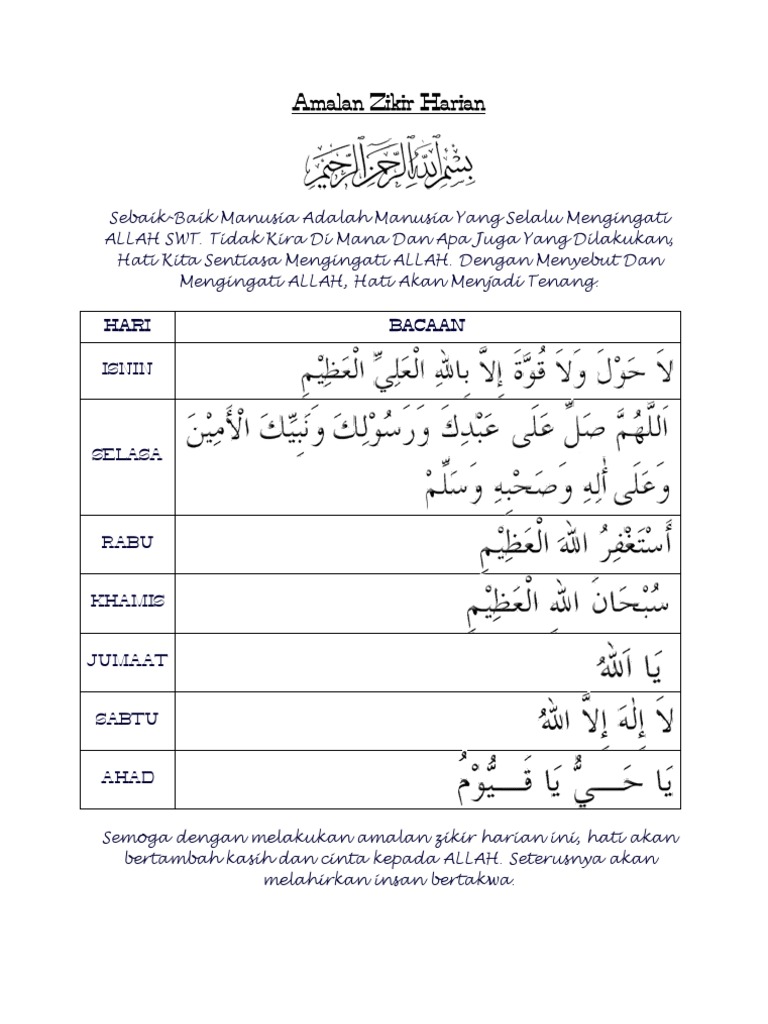 Amalan Zikir Harian
بِسْمِ اللَّهِ الرَّحْمَنِ الرَّحِيمِ
Sebaik-Baik Manusia Adalah Manusia Yang Selalu Mengingati
ALLAH SWT. Tidak Kira Di Mana Dan Apa Juga Yang Dilakukan,
Hati Kita Sentiasa Mengingati ALLAH. Dengan Menyebut Dan
Mengingati ALLAH, Hati Akan Menjadi Tenang.
HARI BACAAN
ISNIN لاَ حَوْلَ وَلاَ قُوَّةَ إِلاَّ بِاللهِ الْعَلِيِّ الْعَظِيْمِ
SELASA اَللَّهُمَّ صَلِّ عَلَى عَبْدِكَ وَرَسُوْلِكَ وَنَبِيِّكَ الْأَمِيْنَ
وَعَلَى أٰلِهِ وَصَحْبِهِ وَسَلِّمْ
RABU أَسْتَغْفِرُ اللهَ الْعَظِيْمِ
KHAMIS سُبْحَانَ اللهِ الْعَظِيْمِ
JUMAAT يَا اَللهُ
SABTU لاَ إِلٰهَ إِلاَّ اللهُ
AHAD يَا حَـــيُّ يَا قَـــيُّوْمُ
Semoga dengan melakukan amalan zikir harian ini, hati akan
bertambah kasih dan cinta kepada ALLAH. Seterusnya akan
melahirkan insan bertakwa.